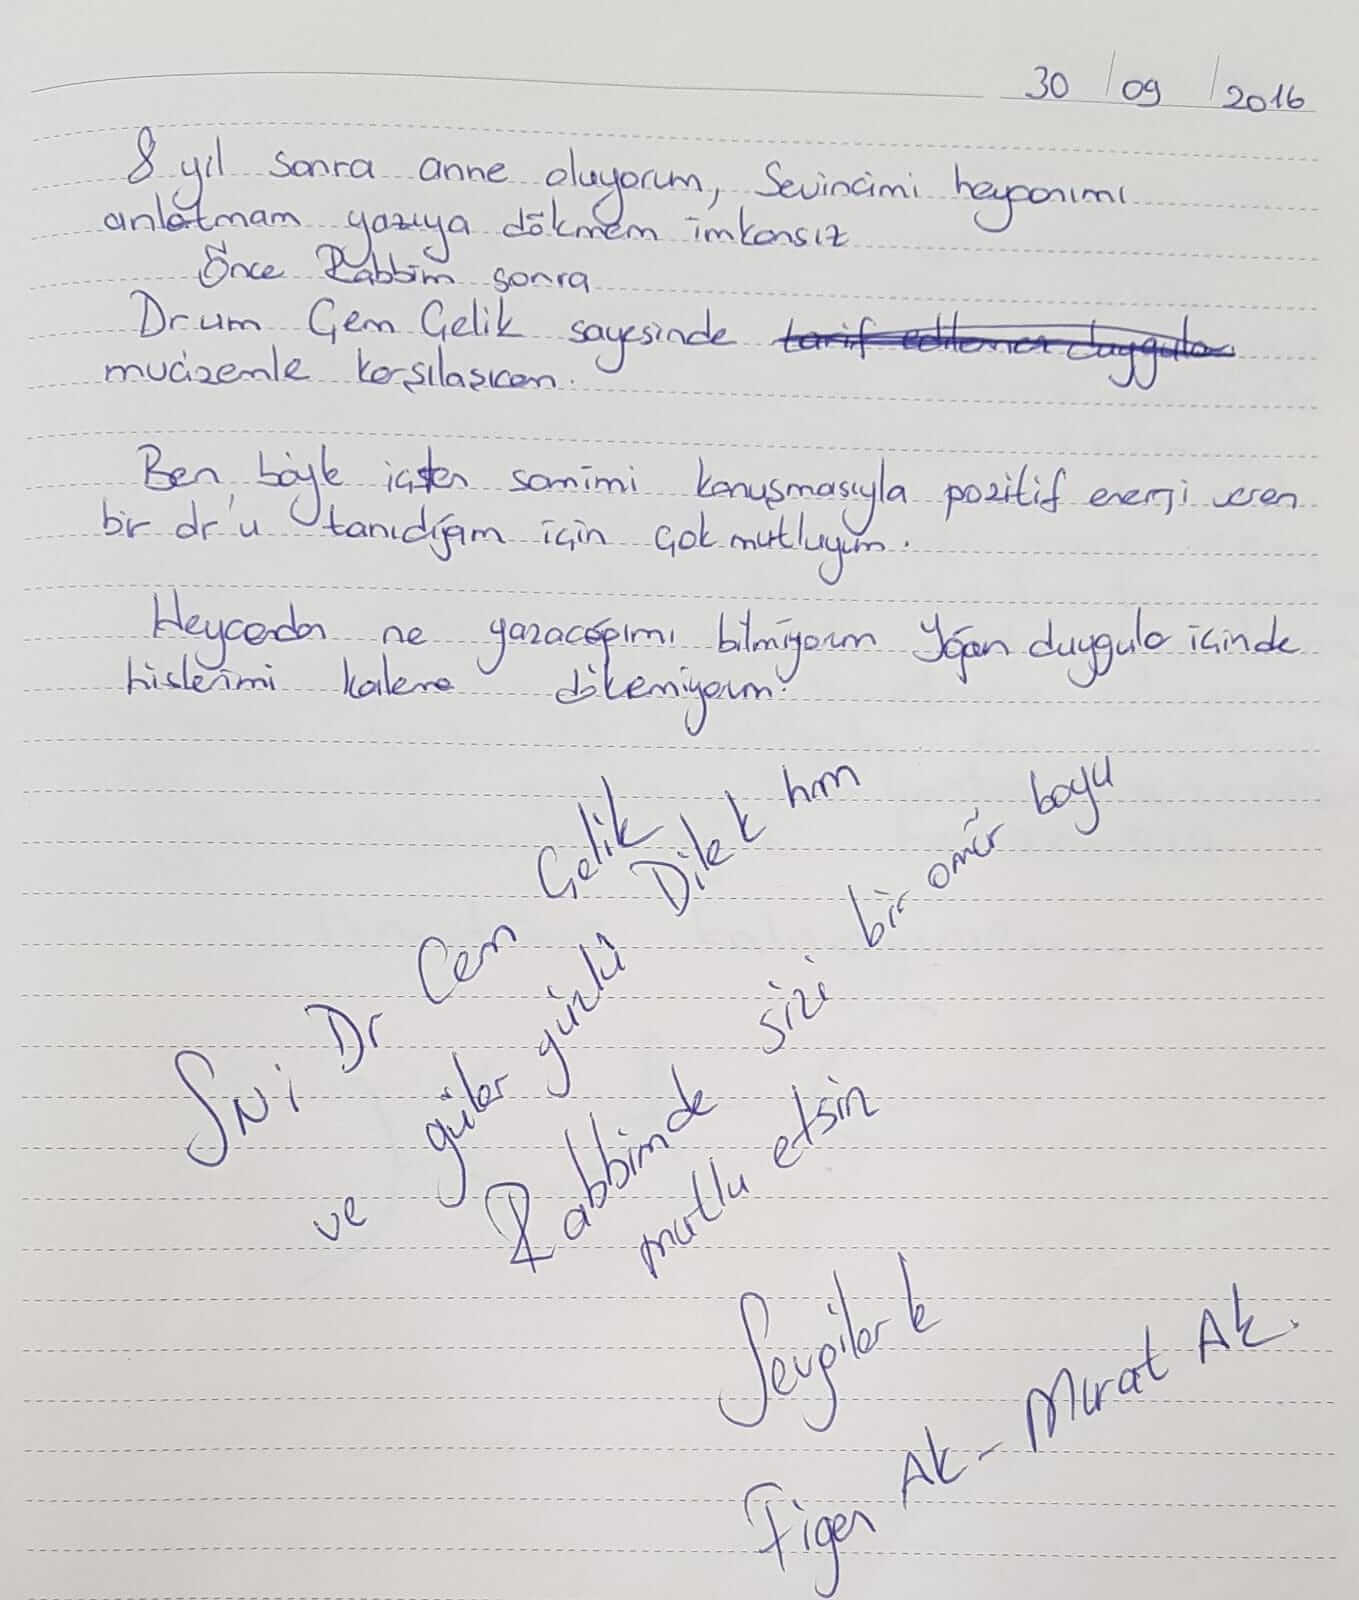 30 / 09 / 2016
8 yıl sonra anne oluyorum, Sevincimi heyecanımı
anlatmam yazıya dökmem imkansız
Önce Rabbim sonra
Drum Cem Çelik sayesinde tarif edilemez duygular
mucizemle karşılaşıcam.
Ben, böyle içten samimi konuşmasıyla pozitif enerji veren
bir dr'u tanıdığım için çok mutluyum.
Heycandan ne yazacağımı bilmiyorum Yoğun duygula içinde
hislerimi kaleme dökemiyorum.
SNi Dr Cem Çelik
ve güler yüzlü Dilek hnm
Rabbimde sizi bir ömür boyu
mutlu etsin
Sevgilerle
Figen Ak - Murat Ak.